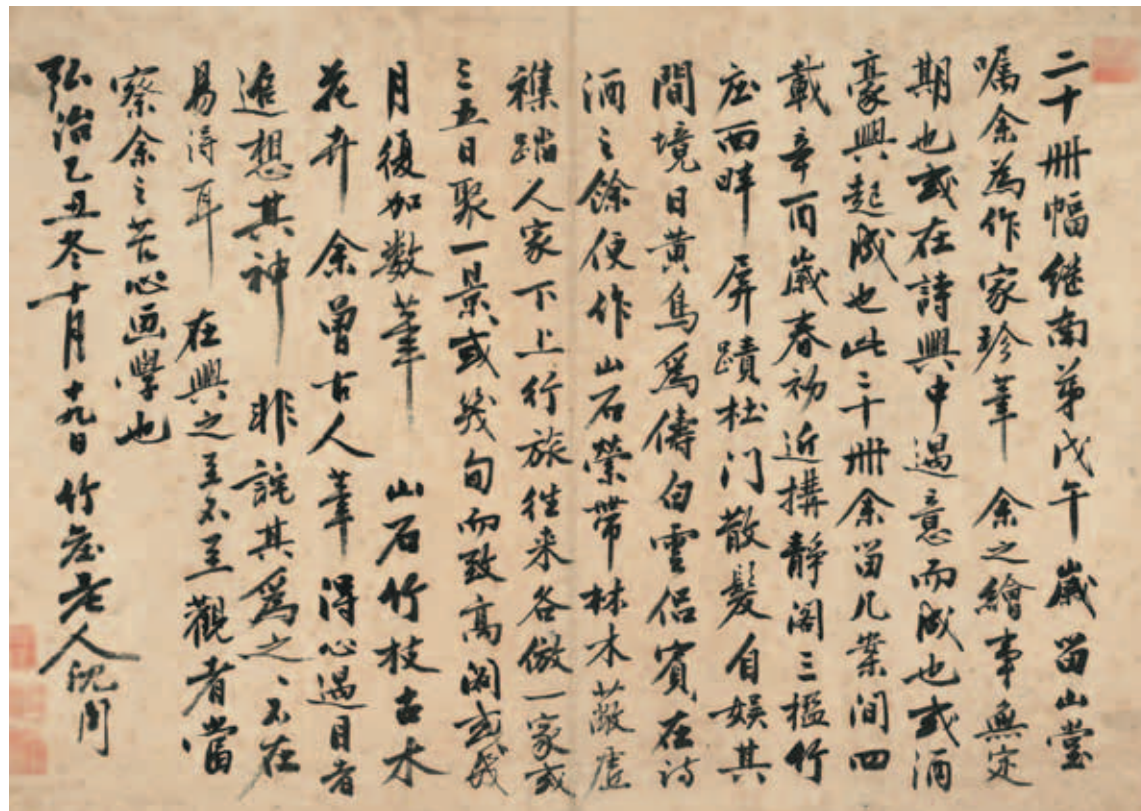 二十冊幅继南弟戊午歲留山堂
囑余為作家珍筆余之繪事無定
期也或在詩興中遇意而成也或酒
豪興起成也此二十冊余留几案間四
載辛酉歲春初近搆靜阁三楹竹
西畔屏蹟杜门散髮自娱其
間境日黄鳥爲儔白雲侣賓在詩
酒之餘便作山石縈帶林木蔽虛
樵踏人家下上行旅往来各倣一家或
三五日聚一景或幾旬而致高阁或幾
月復加数筆山石竹枝古木
花卉余曾古人筆得心遇目者
追想其神非詫其爲之、不在
易得耳在興之至不至觀者當
察余之苦心画學也
弘治乙丑冬十月十九日竹老人沈周